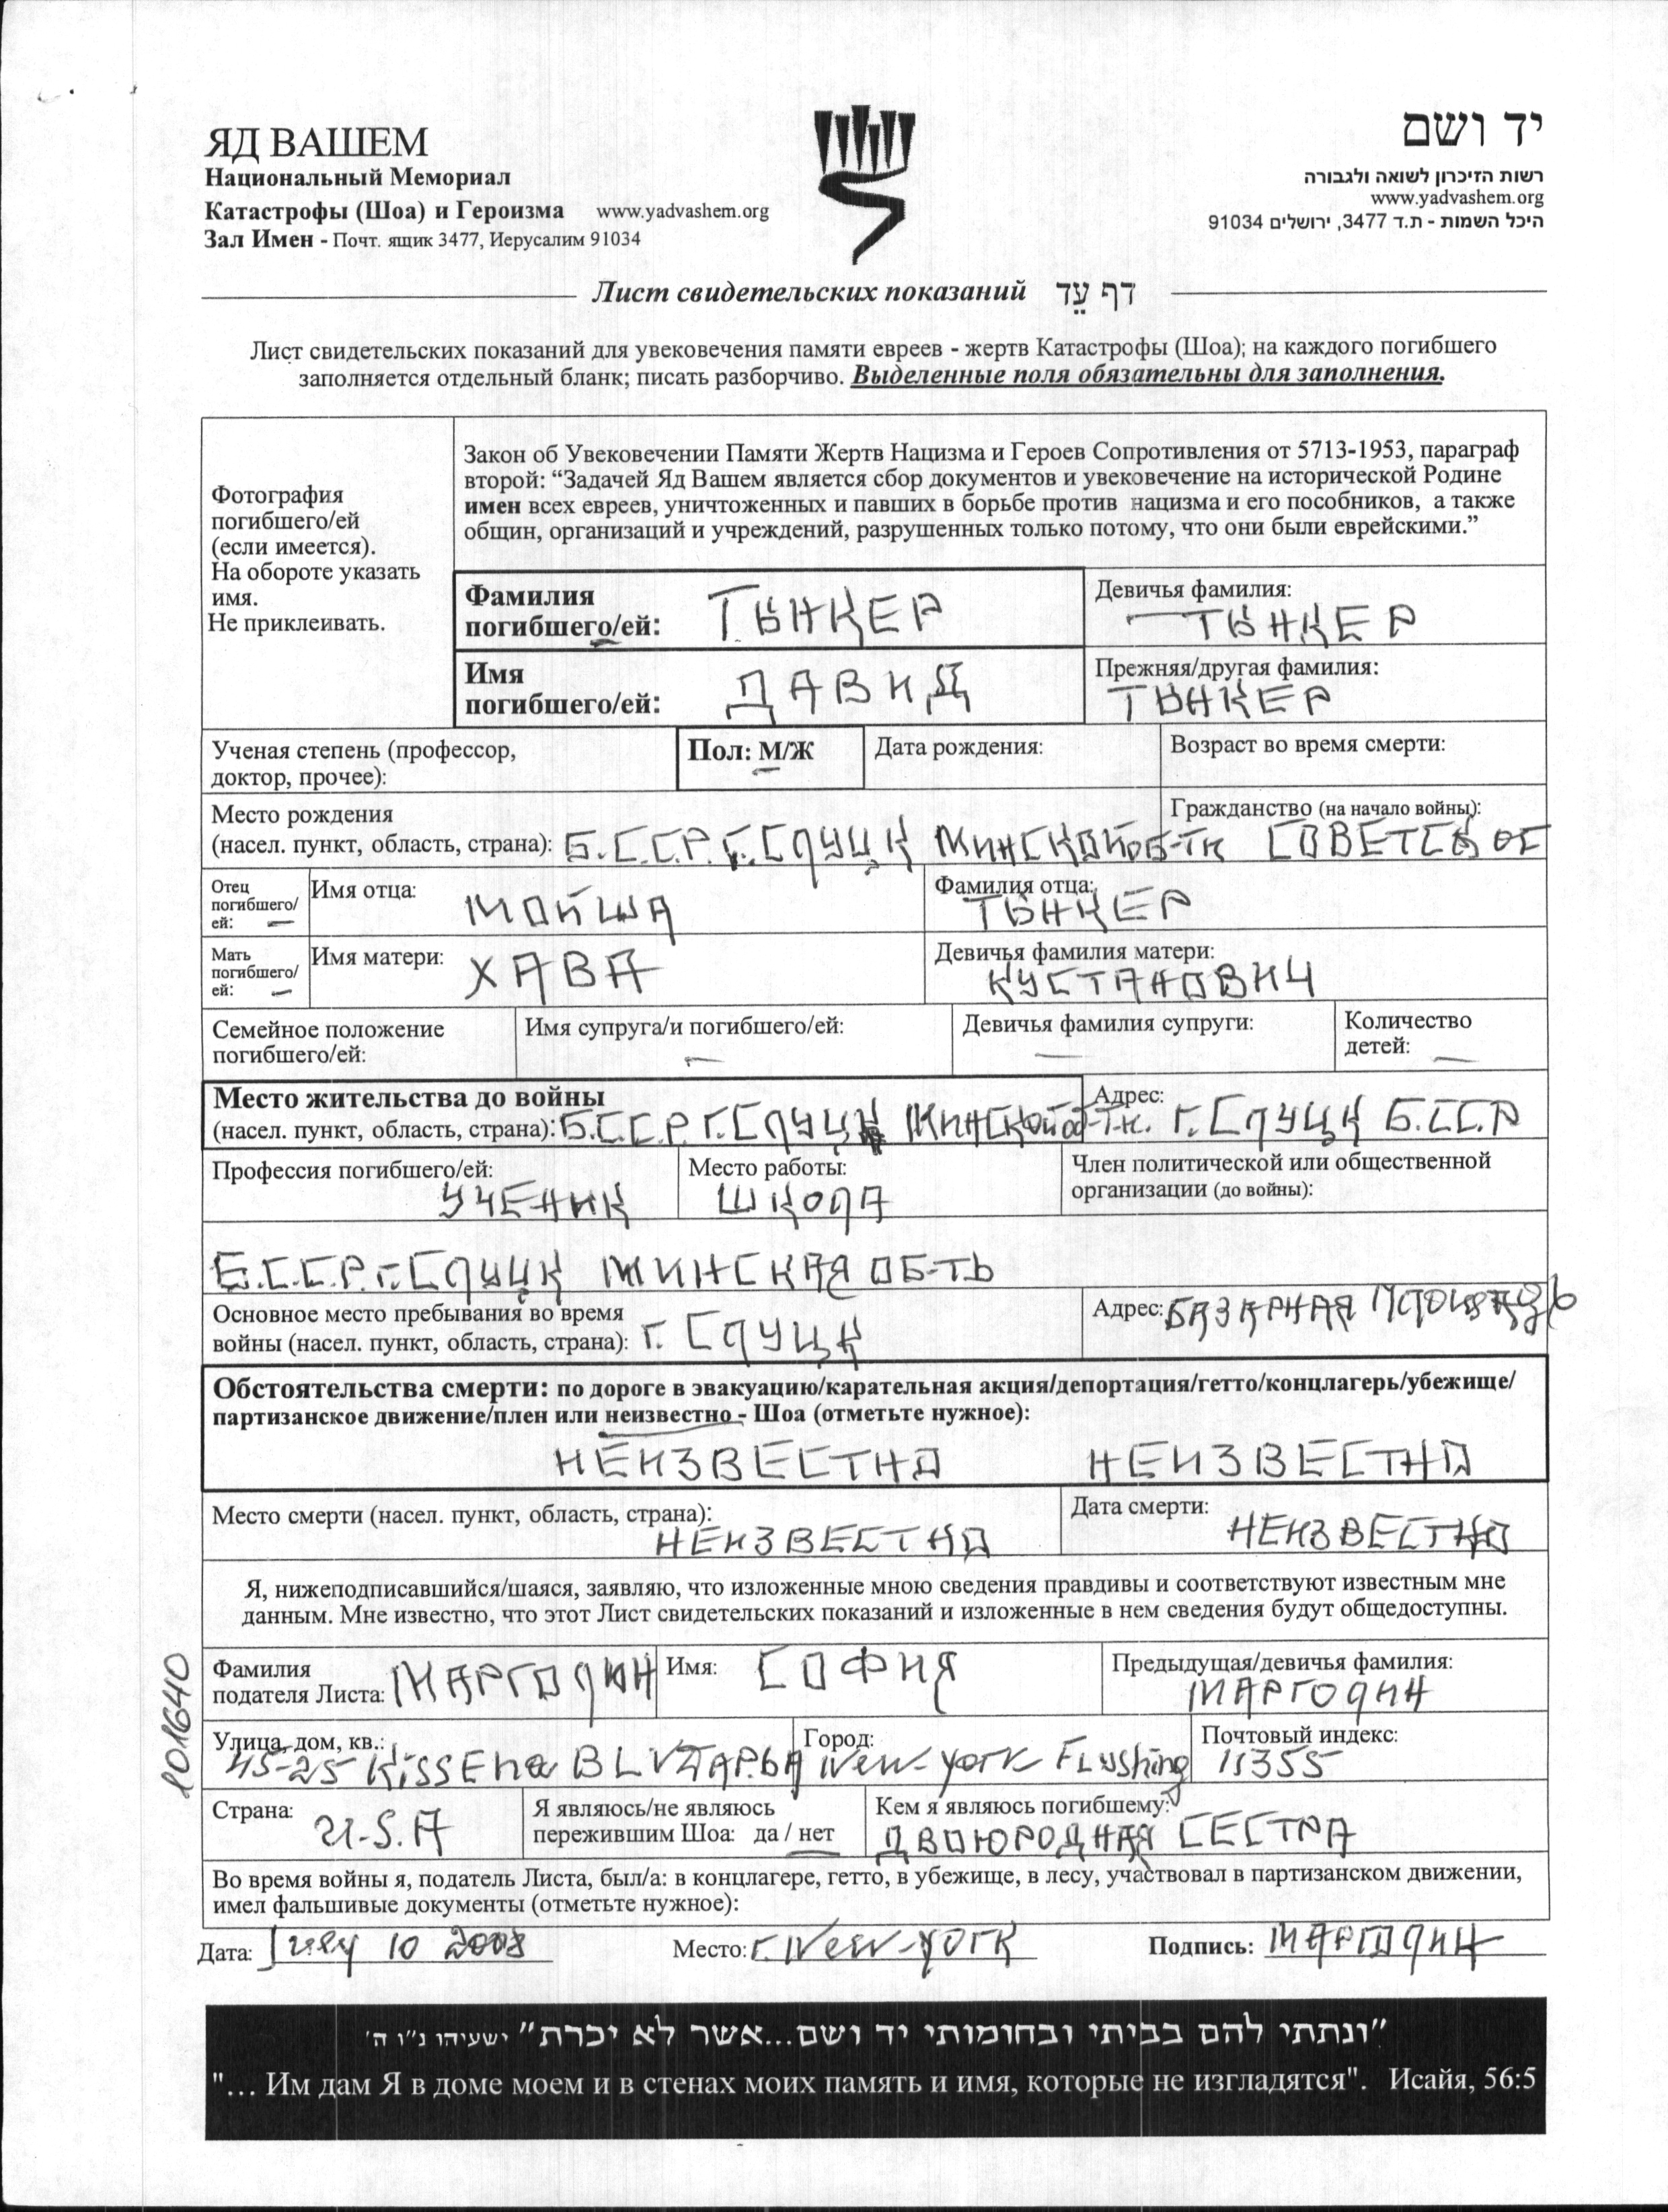 ЯД ВАШЕМ
Национальный Мемориал
Катастрофы (Шоа) и Героизма www.yadvashem.org
Зал Имен - Почт. ящик 3477, Иерусалим 91034
יד ושם
רשות הזיכרון לשואה ולגבורה
www.yadvashem.org
היכל השמות - ת.ד 3477, ירושלים 91034
Лист свидетельских показаний דף עֵד
Лист свидетельских показаний для увековечения памяти евреев - жертв Катастрофы (Шоа); на каждого погибшего
заполняется отдельный бланк; писать разборчиво. Выделенные поля обязательны для заполнения.
Фотография
погибшего/ей
(если имеется).
На обороте указать
имя.
Не приклеивать.
Закон об Увековечении Памяти Жертв Нацизма и Героев Сопротивления от 5713-1953, параграф
второй: “Задачей Яд Вашем является сбор документов и увековечение на исторической Родине
имен всех евреев, уничтоженных и павших в борьбе против нацизма и его пособников, а также
общин, организаций и учреждений, разрушенных только потому, что они были еврейскими.”
Фамилия
погибшего/ей: ТЫНКЕР
Девичья фамилия:
ТЫНКЕР
Имя
погибшего/ей: ДАВИД
Прежняя/другая фамилия:
ТЫНКЕР
Ученая степень (профессор,
доктор, прочее):
Пол: М/Ж
Дата рождения:
Возраст во время смерти:
Место рождения
(насел. пункт, область, страна): Б.С.С.Р. Г. СЛУЦК МИНСКОЙ ОБ-ТИ
Гражданство (на начало войны):
СОВЕТСКОЕ
Отец
погибшего/
ей:
Имя отца: МОЙША
Фамилия отца:
ТЫНКЕР
Мать
погибшего/
ей:
Имя матери: ХАВА
Девичья фамилия матери:
КУСТАНОВИЧ
Семейное положение
погибшего/ей:
Имя супруга/и погибшего/ей:
—
Девичья фамилия супруги:
—
Количество
детей: —
Место жительства до войны
(насел. пункт, область, страна): Б.С.С.Р. Г. СЛУЦК МИНСКОЙ ОБ-ТИ.
Адрес:
Г. СЛУЦК Б.С.С.Р
Профессия погибшего/ей:
УЧЕНИК
Место работы:
ШКОЛА
Член политической или общественной
организации (до войны):
Б.С.С.Р. Г. СЛУЦК МИНСКАЯ ОБ-ТЬ
Основное место пребывания во время
войны (насел. пункт, область, страна): Г. СЛУЦК
Адрес: БАЗАРНАЯ ПЛОЩАДЬ
Обстоятельства смерти: по дороге в эвакуацию/карательная акция/депортация/гетто/концлагерь/убежище/
партизанское движение/плен или неизвестно - Шоа (отметьте нужное):
НЕИЗВЕСТНО НЕИЗВЕСТНО
Место смерти (насел. пункт, область, страна):
НЕИЗВЕСТНО
Дата смерти:
НЕИЗВЕСТНО
Я, нижеподписавшийся/шаяся, заявляю, что изложенные мною сведения правдивы и соответствуют известным мне
данным. Мне известно, что этот Лист свидетельских показаний и изложенные в нем сведения будут общедоступны.
101640
Фамилия
подателя Листа: МАРГОЛИН
Имя: СОФИЯ
Предыдущая/девичья фамилия:
МАРГОЛИН
Улица, дом, кв.:
45-25 KissEna BLVD
Город:
New-york Flushing
Почтовый индекс:
11355
Страна: U.S.A
Я являюсь/не являюсь
пережившим Шоа: да / нет
Кем я являюсь погибшему:
ДВОЮРОДНАЯ СЕСТРА
Во время войны я, податель Листа, был/а: в концлагере, гетто, в убежище, в лесу, участвовал в партизанском движении,
имел фальшивые документы (отметьте нужное):
Дата: July 10 2008
Место: г. New-york
Подпись: МАРГОЛИН
"ונתתי להם בביתי ובחומותי יד ושם...אשר לא יכרת" ישעיהו נ"ו ה'
"... Им дам Я в доме моем и в стенах моих память и имя, которые не изгладятся". Исайя, 56:5